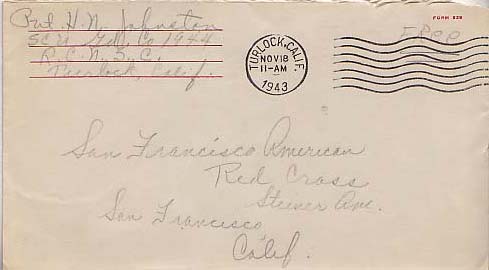 Pvt H. N. Johnston
SCU Gd. Co 1944
R.C.N.S.C.
Turlock, Calif.
TURLOCK, CALIF.
NOV 18
11-AM
1943
FORM 539
FREE
San Francisco American
Red Cross
Steiner Ave.
San Francisco
Calif.